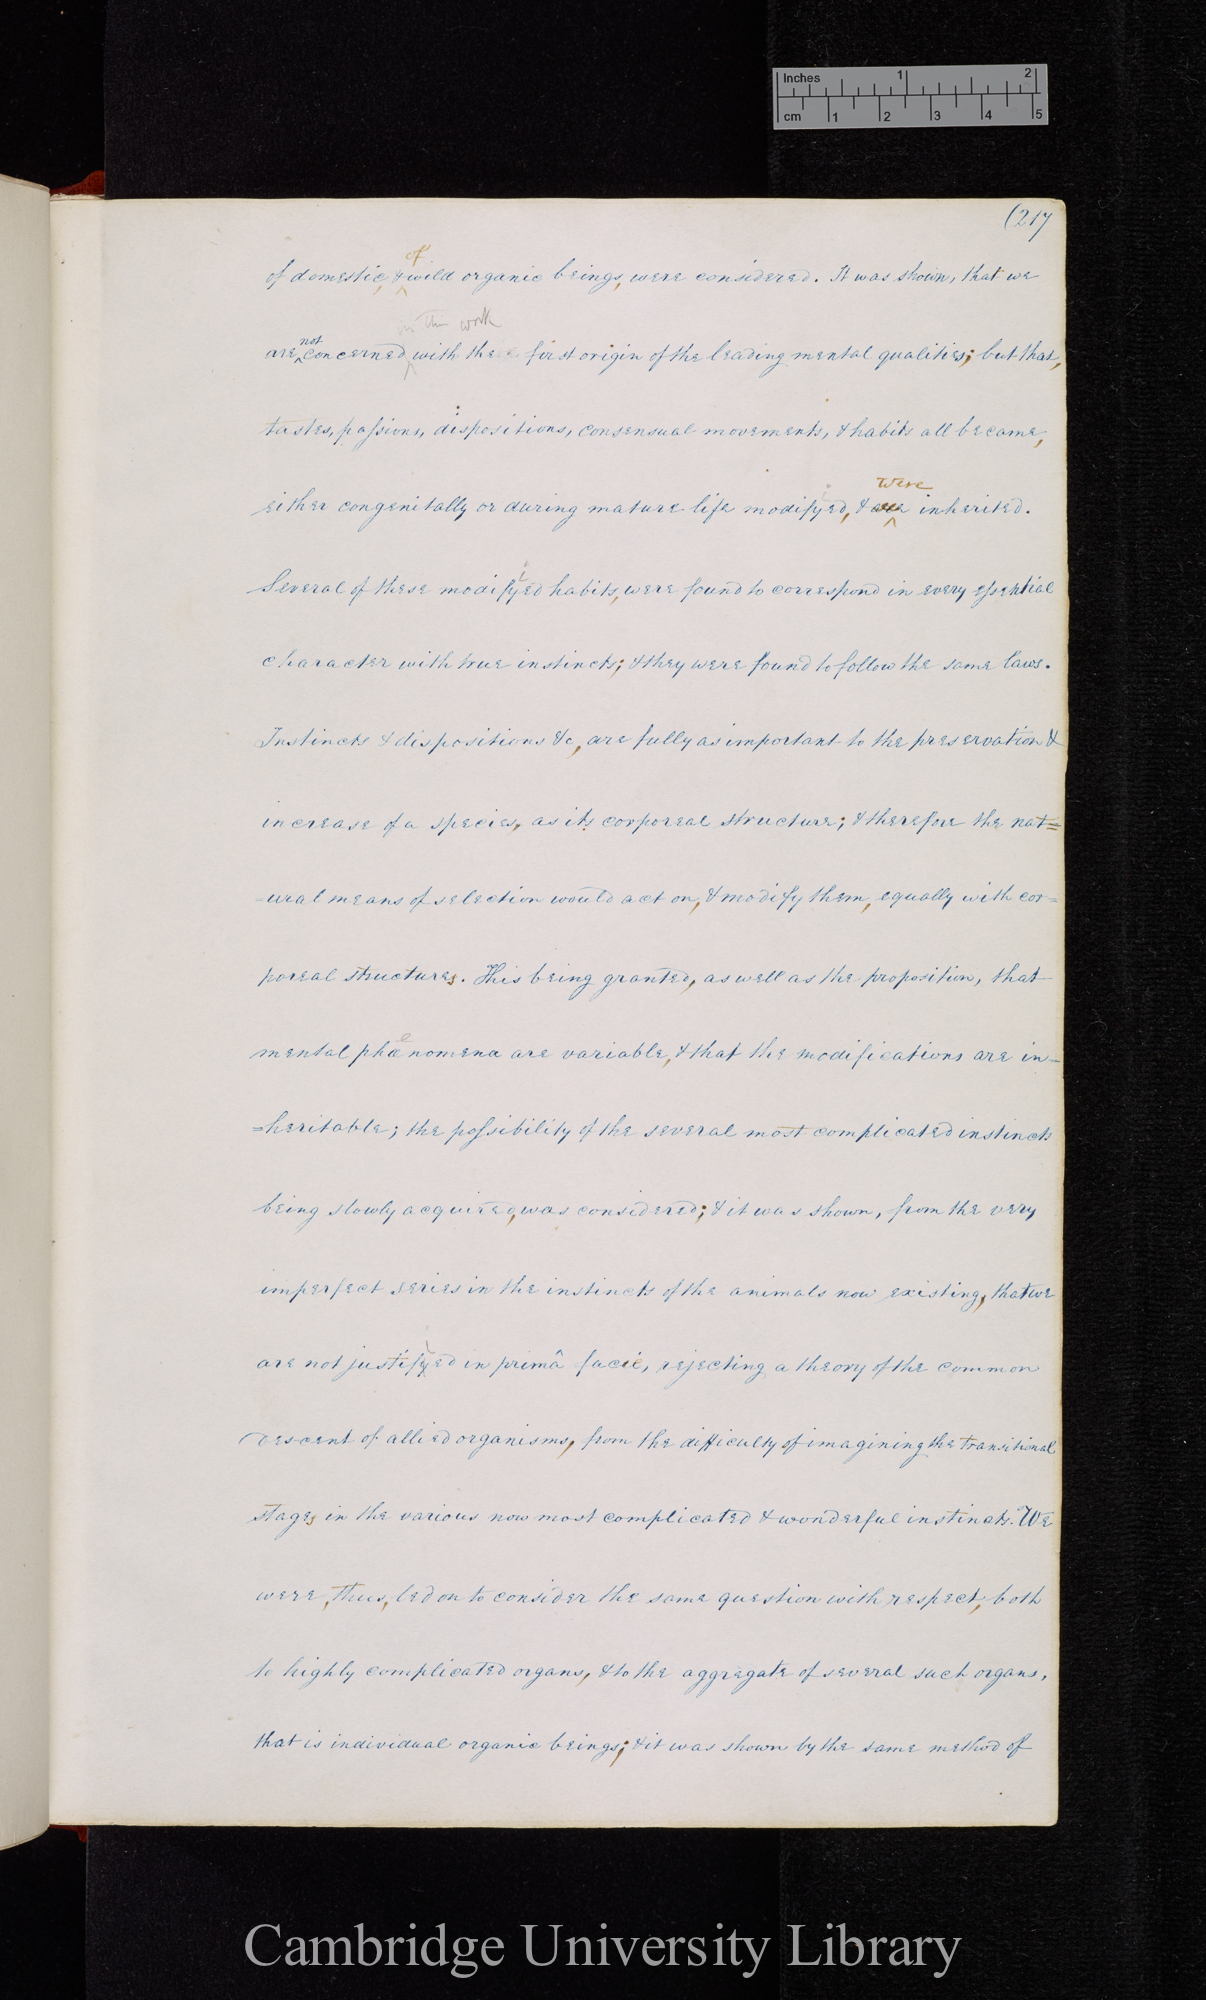 Inches 1 2
cm 1 2 3 4 5
(217
of
of domestic, & wild organic beings, were considered. It was shown, that we
in this work
not
are concerned with the first origin of the leading mental qualities; but that,
tastes, passions, dispositions, consensual movements, & habits all became,
were
either congenitally or during mature life modifyed, & are inherited.
i
Several of these modifyed habits, were found to correspond in every essential
character with true instincts; & they were found to follow the same laws.
Instincts & dispositions &c, are fully as important to the preservation &
increase of a species, as its corporeal structure; & therefore the nat=
=ural means of selection would act on, & modify them, equally with cor=
poreal structures. This being granted, as well as the proposition, that
mental phœnomena are variable, & that the modifications are in=
=heritable; the possibility of the several most complicated instincts
being slowly acquired, was considered; & it was shown, from the very
imperfect series in the instincts of the animals now existing, that we
i
are not justifyed in primâ facie, rejecting a theory of the common
descent of allied organisms, from the difficulty of imagining the transitional
stages in the various now most complicated & wonderful instincts. We
were, thus, led on to consider the same question with respect, both
to highly complicated organs, & to the aggregate of several such organs,
that is individual organic beings; & it was shown by the same method of
Cambridge University Library